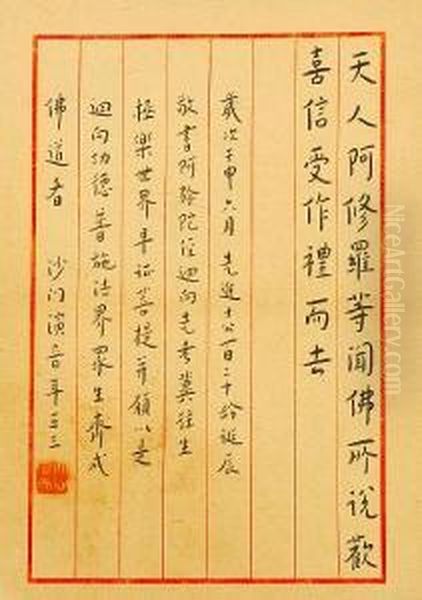 天人阿修羅等聞佛所說歡
喜信受作禮而去
歲次壬申六月先進士公百二十齡誕辰
敬書阿彌陀經迴向先考冀往生
極樂世界早証菩提並願以是
迴向功德普施法界眾生齊成
佛道者 沙門演音年五十三
NiceArtGallery.com